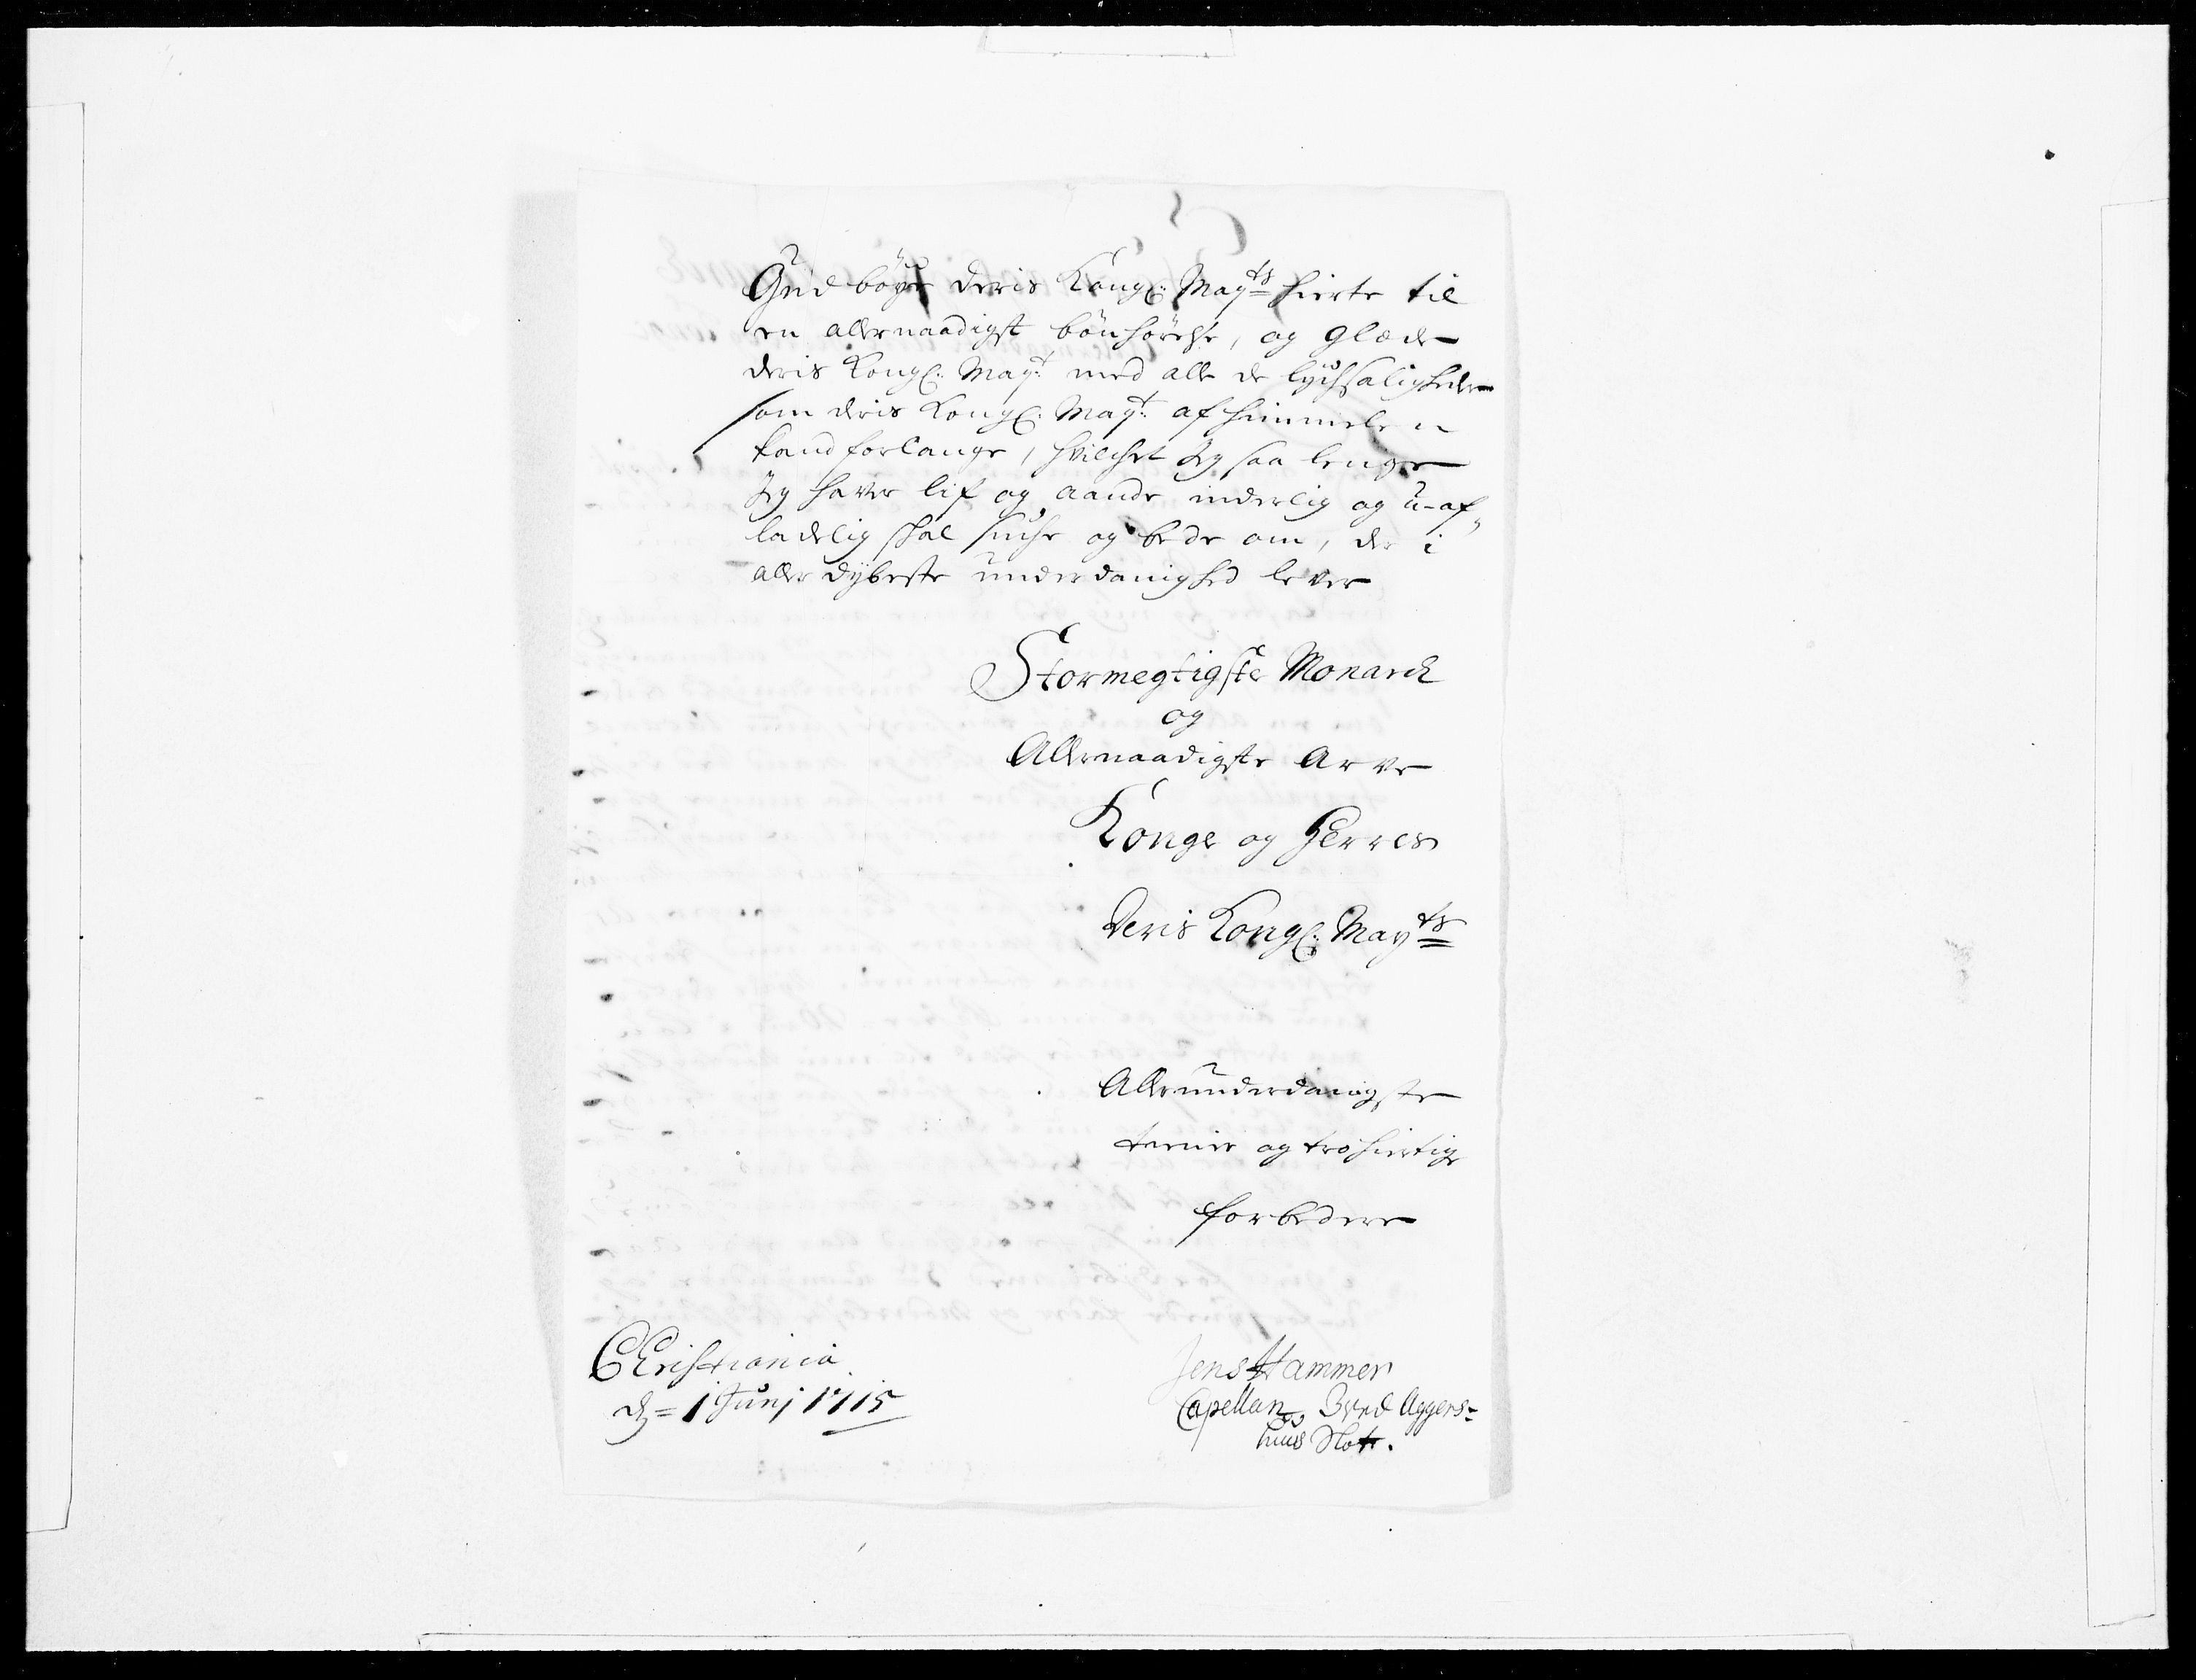 Gud böye deris Kongl: Mayts hierte til
en allernaadigst bönhörelse, og glæde
deris Kongl: Mayt: med alle de lychsaligheder
som deris Kongl: Mayt: af himmelen
kand forlange, hvilchet jeg saa lenge
jeg haver lif og aande inderlig og u-af„
ladelig skal suche og bede om, der i
aller dybeste underdanighed lever
Stormegtigste Monarch
og
Allernaadigste Arve
Konge og Herres
Deris Kongl: Mayts
Allerunderdanigste
tienner og trohiertige
forbedere
Christiania
d= 1 Junj 1715
Jens Hammer
Capellan ved Aggers=
huus Slott.